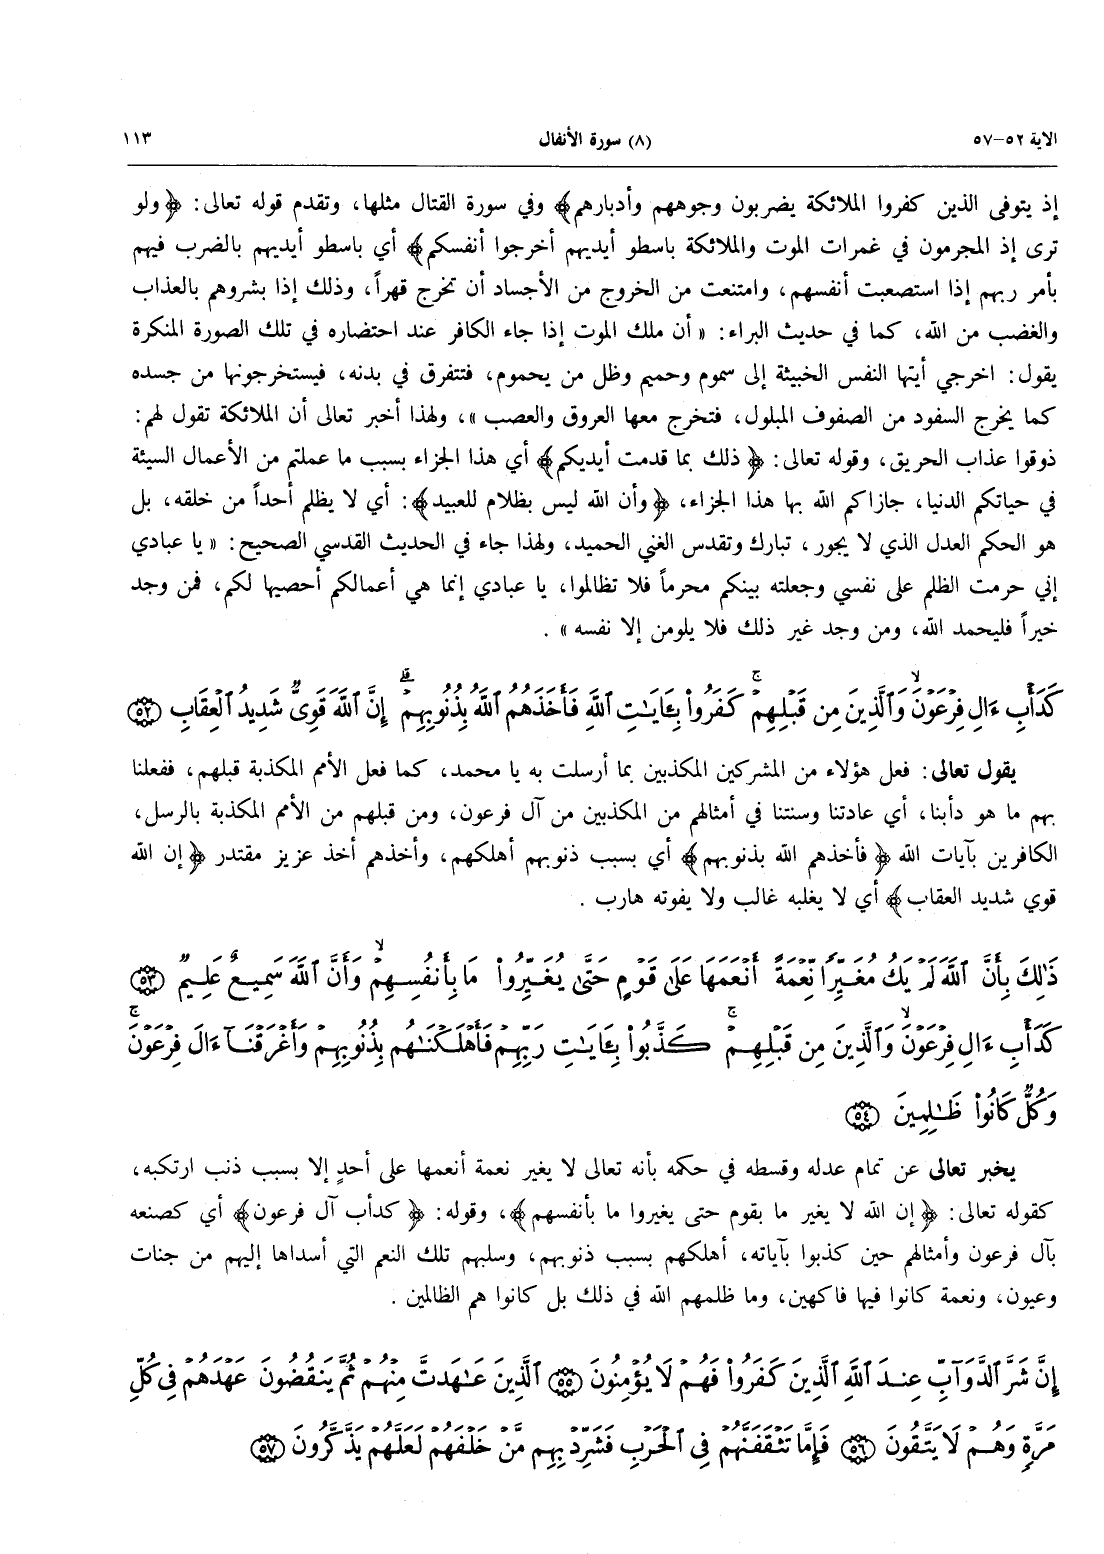 الآية ٥٢–٥٧ (٨) سورة الأنفال ١١٣
إذ يتوفى الذين كفروا الملائكة يضربون وجوههم وأدبارهم﴾ وفي سورة القتال مثلها، وتقدم قوله تعالى: ﴿ولو
ترى إذ المجرمون في غمرات الموت والملائكة باسطو أيديهم أخرجوا أنفسكم﴾ أي باسطو أيديهم بالضرب فيهم
بأمر ربهم إذا استصعبت أنفسهم، وامتنعت من الخروج من الأجساد أن تخرج قهراً، وذلك إذا بشروهم بالعذاب
والغضب من الله، كما في حديث البراء: « أن ملك الموت إذا جاء الكافر عند احتضاره في تلك الصورة المنكرة
يقول: اخرجي أيتها النفس الخبيثة إلى سموم وحميم وظل من يحموم، فتتفرق في بدنه، فيستخرجونها من جسده
كما يخرج السفود من الصفوف المبلول، فتخرج معها العروق والعصب »، ولهذا أخبر تعالى أن الملائكة تقول لهم:
ذوقوا عذاب الحريق، وقوله تعالى: ﴿ ذلك بما قدمت أيديكم﴾ أي هذا الجزاء بسبب ما عملتم من الأعمال السيئة
في حياتكم الدنيا، جازاكم الله بها هذا الجزاء، ﴿وأن الله ليس بظلام للعبيد﴾: أي لا يظلم أحداً من خلقه، بل
هو الحكم العدل الذي لا يجور، تبارك وتقدس الغني الحميد، ولهذا جاء في الحديث القدسي الصحيح: « يا عبادي
إني حرمت الظلم على نفسي وجعلته بينكم محرماً فلا تظالموا، يا عبادي إنما هي أعمالكم أحصيها لكم، فمن وجد
خيراً فليحمد الله، ومن وجد غير ذلك فلا يلومن إلا نفسه» .
كَدَأْبِ ءَالِ فِرْعَوْنَ ۙ وَٱلَّذِينَ مِن قَبْلِهِمْ ۚ كَفَرُوا۟ بِـَٔايَـٰتِ ٱللَّهِ فَأَخَذَهُمُ ٱللَّهُ بِذُنُوبِهِمْ ۗ إِنَّ ٱللَّهَ قَوِىٌّ شَدِيدُ ٱلْعِقَابِ ﴿٥٢﴾
يقول تعالى: فعل هؤلاء من المشركين المكذبين بما أرسلت به يا محمد، كما فعل الأمم المكذبة قبلهم، ففعلنا
بهم ما هو دأبنا، أي عادتنا وسنتنا في أمثالهم من المكذبين من آل فرعون، ومن قبلهم من الأمم المكذبة بالرسل،
الكافرين بآيات الله ﴿ فأخذهم الله بذنوبهم﴾ أي بسبب ذنوبهم أهلكهم، وأخذهم أخذ عزيز مقتدر ﴿إن الله
قوي شديد العقاب﴾ أي لا يغلبه غالب ولا يفوته هارب .
ذَٰلِكَ بِأَنَّ ٱللَّهَ لَمْ يَكُ مُغَيِّرًا نِّعْمَةً أَنْعَمَهَا عَلَىٰ قَوْمٍ حَتَّىٰ يُغَيِّرُوا۟ مَا بِأَنفُسِهِمْ ۙ وَأَنَّ ٱللَّهَ سَمِيعٌ عَلِيمٌ ﴿٥٣﴾
كَدَأْبِ ءَالِ فِرْعَوْنَ ۙ وَٱلَّذِينَ مِن قَبْلِهِمْ ۚ كَذَّبُوا۟ بِـَٔايَـٰتِ رَبِّهِمْ فَأَهْلَكْنَـٰهُم بِذُنُوبِهِمْ وَأَغْرَقْنَآ ءَالَ فِرْعَوْنَ ۚ
وَكُلٌّ كَانُوا۟ ظَـٰلِمِينَ ﴿٥٤﴾
يخبر تعالى عن تمام عدله وقسطه في حكمه بأنه تعالى لا يغير نعمة أنعمها على أحدٍ إلا بسبب ذنب ارتكبه،
كقوله تعالى: ﴿إن الله لا يغير ما بقوم حتى يغيروا ما بأنفسهم﴾، وقوله: ﴿ كدأب آل فرعون﴾ أي كصنعه
بآل فرعون وأمثالهم حين كذبوا بآياته، أهلكهم بسبب ذنوبهم، وسلبهم تلك النعم التي أسداها إليهم من جنات
وعيون، ونعمة كانوا فيها فاكهين، وما ظلمهم الله في ذلك بل كانوا هم الظالمين .
إِنَّ شَرَّ ٱلدَّوَآبِّ عِندَ ٱللَّهِ ٱلَّذِينَ كَفَرُوا۟ فَهُمْ لَا يُؤْمِنُونَ ﴿٥٥﴾ ٱلَّذِينَ عَـٰهَدتَّ مِنْهُمْ ثُمَّ يَنقُضُونَ عَهْدَهُمْ فِى كُلِّ
مَرَّةٍ وَهُمْ لَا يَتَّقُونَ ﴿٥٦﴾ فَإِمَّا تَثْقَفَنَّهُمْ فِى ٱلْحَرْبِ فَشَرِّدْ بِهِم مَّنْ خَلْفَهُمْ لَعَلَّهُمْ يَذَّكَّرُونَ ﴿٥٧﴾